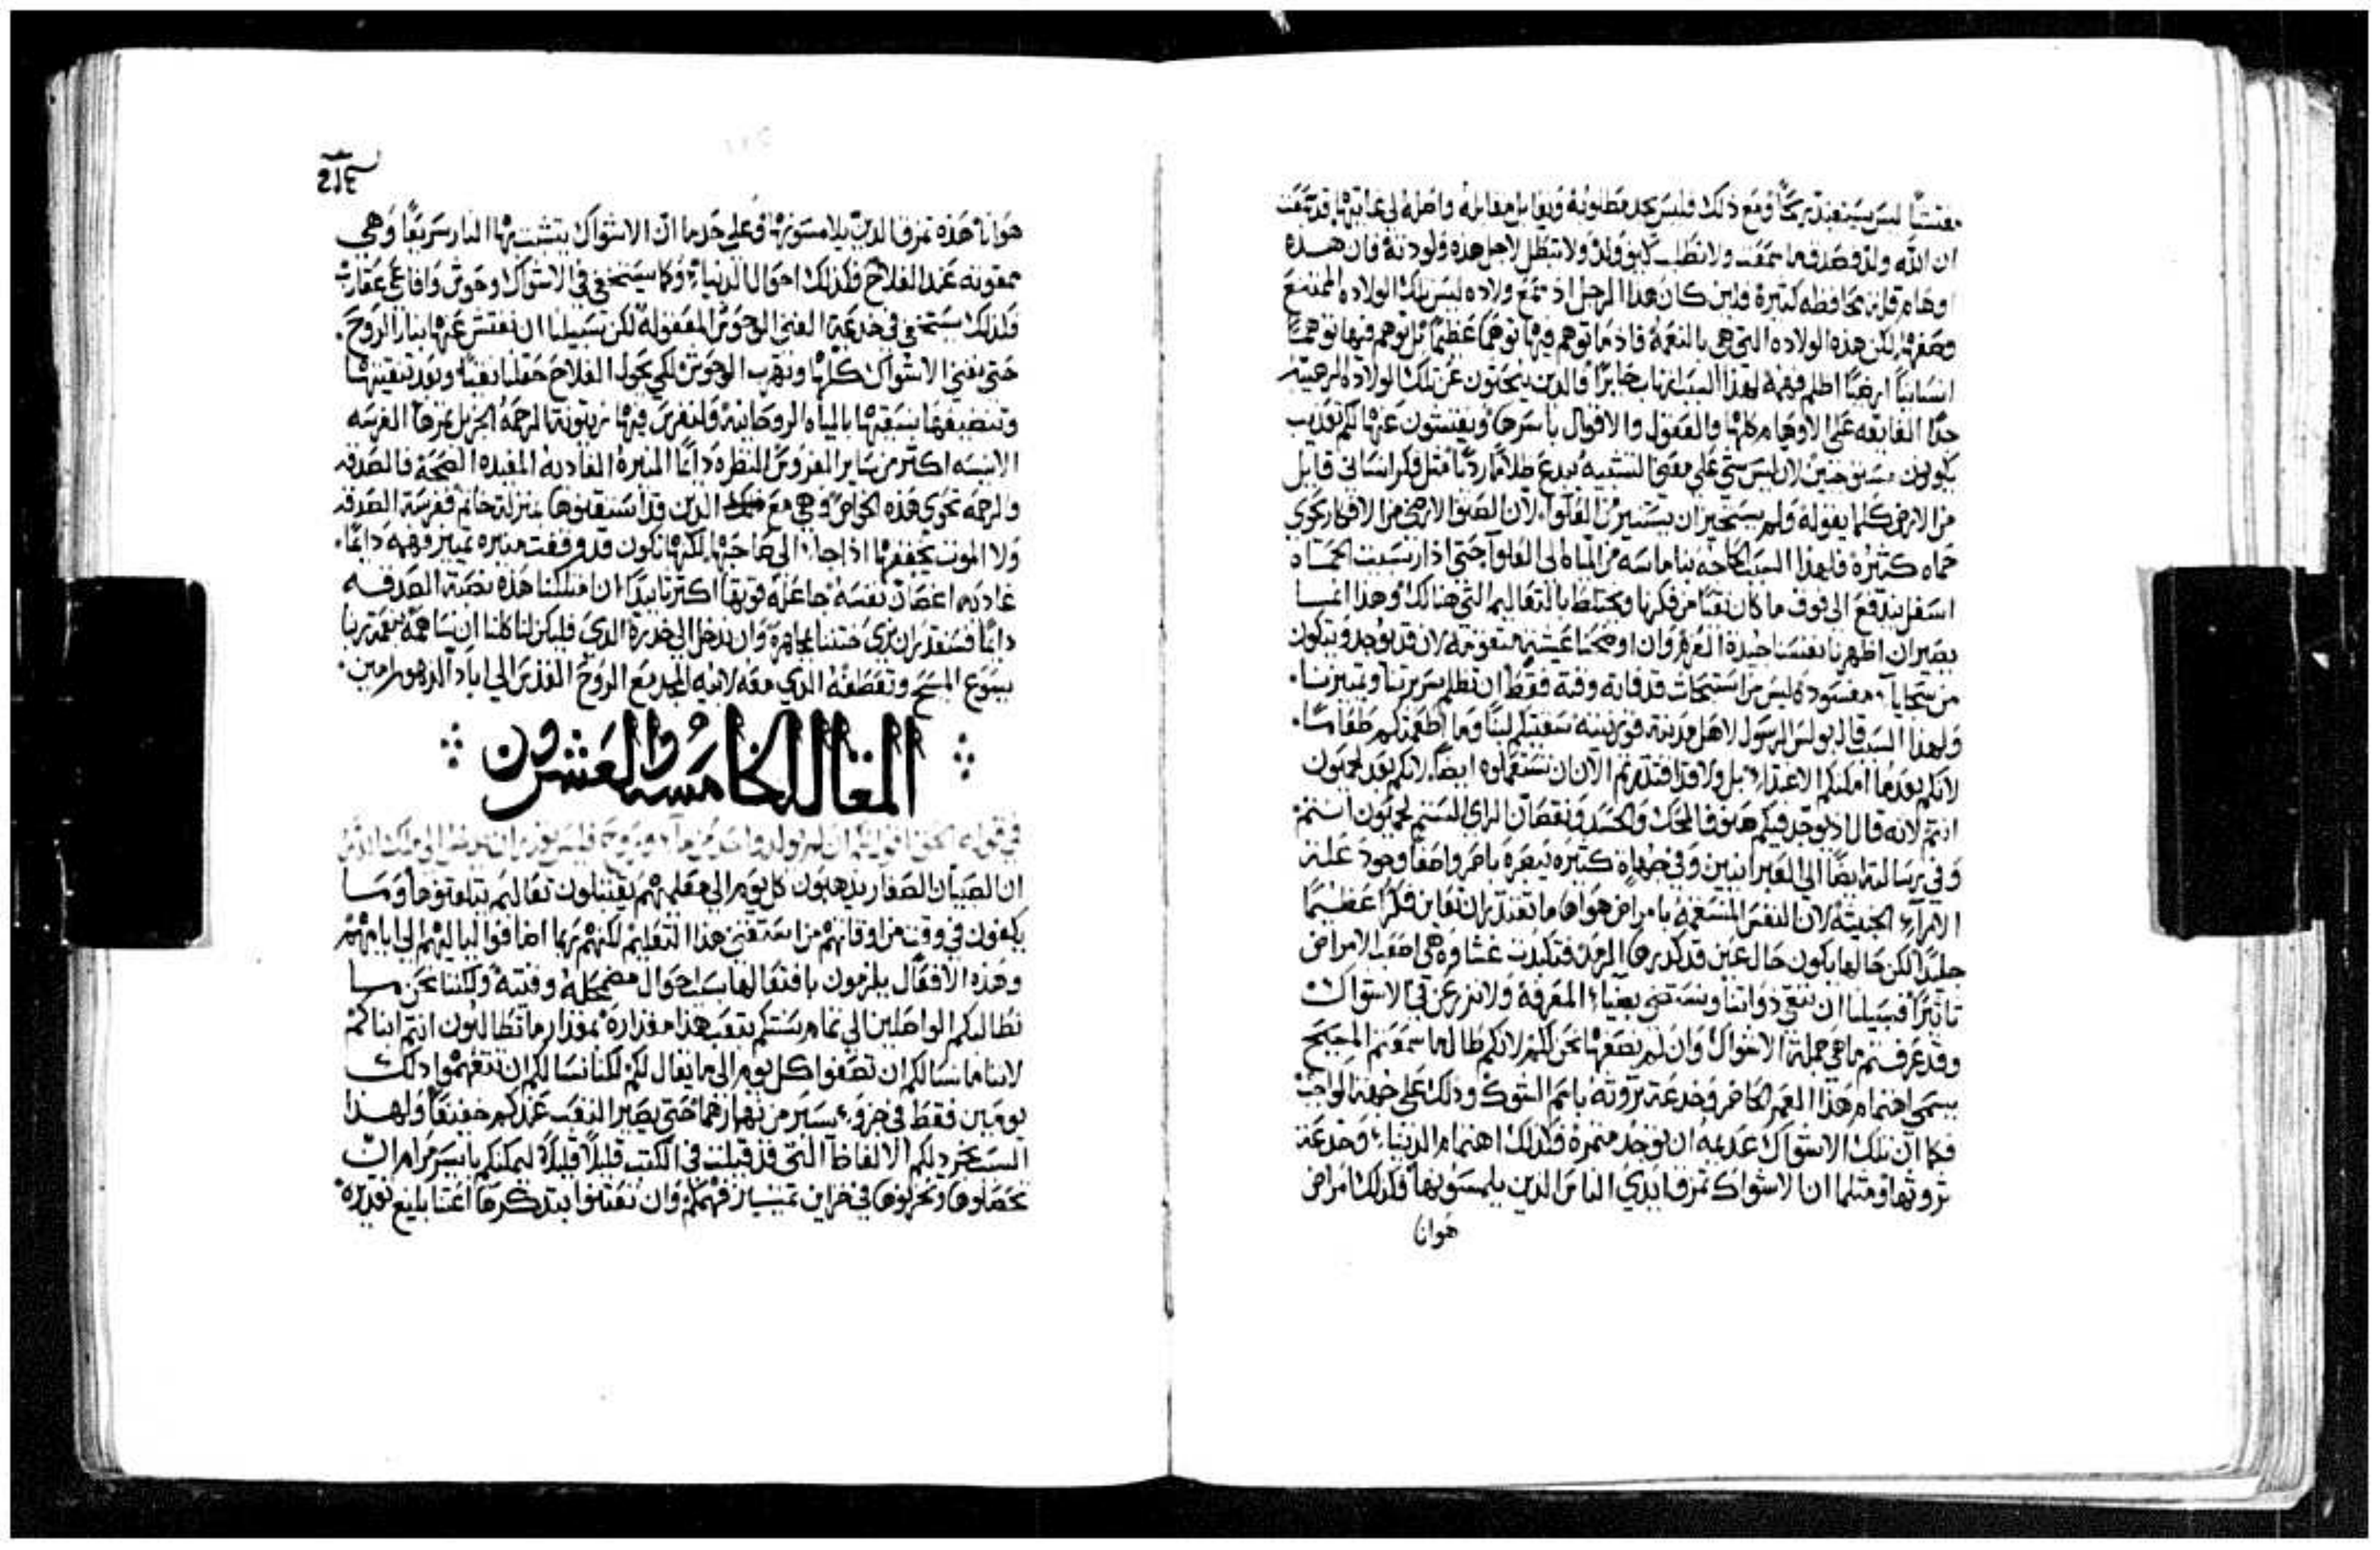 مفتشًا ليس يستفيد ربحًا ومع ذلك فليس يجد مطلوبه ويقابل مقابله واصله الي غايتها قد سمعت
ان الله ولد فصدق ما سمعت ولا تطلب كيف ولد ولا تبطل لاجل هذه ولود ته فان هذه
اوهام قليله محافظه كثيرة فلين كان هذا الرجل اذ سمع ولاده ليس تلك الولاده الممتنع
وصفها لكن هذه الولاده التي هي بالنعمة فاذ ما توهم فيها توهمًا عظيمًا بل توهم فيها توهمًا
انسانيًا ارضيًا اظلم فهمه لهذا السبب فالذين يبحتون عن تلك الولاده الرهيبه
جدًا الفايقه علي الاوهام كلها والعقول والاقوال باسرها ويفتشون عنها لكم تعذيب
يكونون مستوجبين لان ليس شي علي معني التشبيه يبدع ظلامًا رديًا مثل فكر انساني قايل
من الارض كلما يقوله ولم يستجيز ان يستنير من العلو لان الضو الارضي من الافكار يحوي
حماه كثيرة فلهذا السبب الحاجه بنا ماسه من المياه الي العلو حتي اذا رسبت الحماه
اسفل يندفع الي فوق ما كان نقيًا من فكرنا ويختلط بالتعاليم التي هنالك وهذا انما
يصير ان اظهرنا نفسًا جيدة العزم وان اوضحنا عيشه متقومه لان قد يوجد ويتكون
من سجايا مفسوده ليس من استبحات قد فاته وقته فقط ان تظلم سريرتنا وتميزنا
ولهذا السبب قال بولس الرسول لاهل مدينة قورنتيه سقيتكم لبنًا وما اطعمتكم طعامًا
لانكم بعد ما امكنكم الاغتذا به بل ولا قد اقتدرتم الان ان تستعملوه ايضًا لانكم بعد لحميون
انتم لانه قال اذ يوجد فيكم هذه المحك والحسد ونقصان الراي الستم لحميون انتم
وفي رسالته ايضًا الي العبرانيين وفي جهات كثيرة تبصره يامر واصفًا وجود علة
الاراء الخبيثه لان النفس المنسقمة بامراض هواها ما تقتدر ان تعاين فكرًا عظيمًا
جليلًا لكن حالها يكون حال عين قد كدرها الرمد فتكبدت غشاوه هي اصعب الامراض
تاثيرًا فسبيلنا ان ننقي ذواتنا ونستضي بضياء المعرفة ولا نزرع في الاشواك
وقد عرفتم ما هي جملة الاشواك وان لم نصفها نحن لكم لانكم طالما سمعتم المسيح
يسمي اهتمام هذا العمر الحاضر وخدعة ثروته باسم الشوك وذلك علي جهة الواجب
فكما ان تلك الاشواك عديمه ان توجد مثمرة فكذلك اهتمام الدنيا وخدعة
ثروتها ومثلما ان الاشواك تمزق ايدي الناس الذين يلمسونها فكذلك امراض
هوانا
هوانا هذه تمزق الذين يلامسونها وعلي حد ما ان الاشواك يتشبث بها النار سريعًا وهي
ممقوته عند الفلاح فكذلك احوال الدنيا وكما يستخفي في الاشواك وحوش وافاعي عقارب
فكذلك يستخفي في خدعة الغني الوحوش المعقوله لكن سبيلنا ان نفتش عنها بنار الروح
حتي نفني الاشواك كلها ونهرب الوحوش لكي يحول الفلاح حقلنا نقيًا وبعد تنقيتها
وتنضيفها نسقيها بالمياه الروحانيه ولنغرس فيها زيتونة الرحمة الجزيل ثمرها الغرسه
الانيسه اكثر من ساير الغروس النظره دايمًا المنيرة الغاديه المفيده الصحة فالصدقه
والرحمه تحوي هذه الخواص وهي مع الذين قد استقنوها بمنزلة خاتم فغرسة الصدقه
ولا الموت يجففها اذا جاء الي صاحبها لكنها تكون قد وقفت منيره تمييز فهمه دايمًا
غاديه اعضاء نفسه جاعلة قوتها اكثر تاييدًا ان امتلكنا هذه نصبة الصدقه
دايمًا فسنقدر ان نري ختننا مجاهرة وان ندخل الي خدره الذي فليكن لنا كلنا ان نساهمه بنعمة ربنا
يسوع المسيح وتعطفه الذي معه لابيه المجد مع الروح القدس الي اباد الدهور امين
المقاله الخامسه والعشرون
في قوله الحق اقول لك ان لم يولد واحد من ماء وروح فليس يقدر ان يدخل الي ملك الله
ان الصبيان الصغار يذهبون كل يوم الي معلمهم يقتبلون تعاليم يتلقنونها وما
يكفون في وقت من اوقاتهم من استقني هذا التعليم لكنهم ربما اضافوا لياليهم الي ايامهم
وهذه الافعال يلزمون بافتعالها بسبب احوال مضمحله وفتيه ولكننا نحن ما
نطالبكم الواصلين الي تمام سنكم بتعب هذا مقداره بمقدار ما تطالبون انتم ابناكم
لاننا ما نسالكم ان تصغوا كل يوم الي ما يقال لكم لكننا نسالكم ان تتفهموا ذلك
يومين فقط في جزو يسير من نهارهما حتي يصير التعب عندكم خفيفًا ولهذا
السبب نجزي لكم الالفاظ التي قد قيلت في الكتب قليلًا قليلًا ليمكنكم بايسر مرام ان
تحصلوها وتخزنوها في خزاين تمييز فهمكم وان تعتنوا بتذكرها اعتنا بليغ تقديره